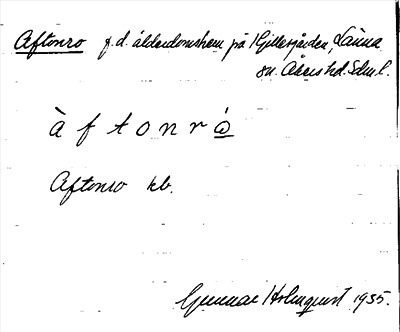 Aftonro f.d. ålderdomshem på Hjillersjärden, Länna
sn. Åkers hd. Sdml.
à f t o n r ó
Aftonro kb.
Gunnar Holmquist 1935.